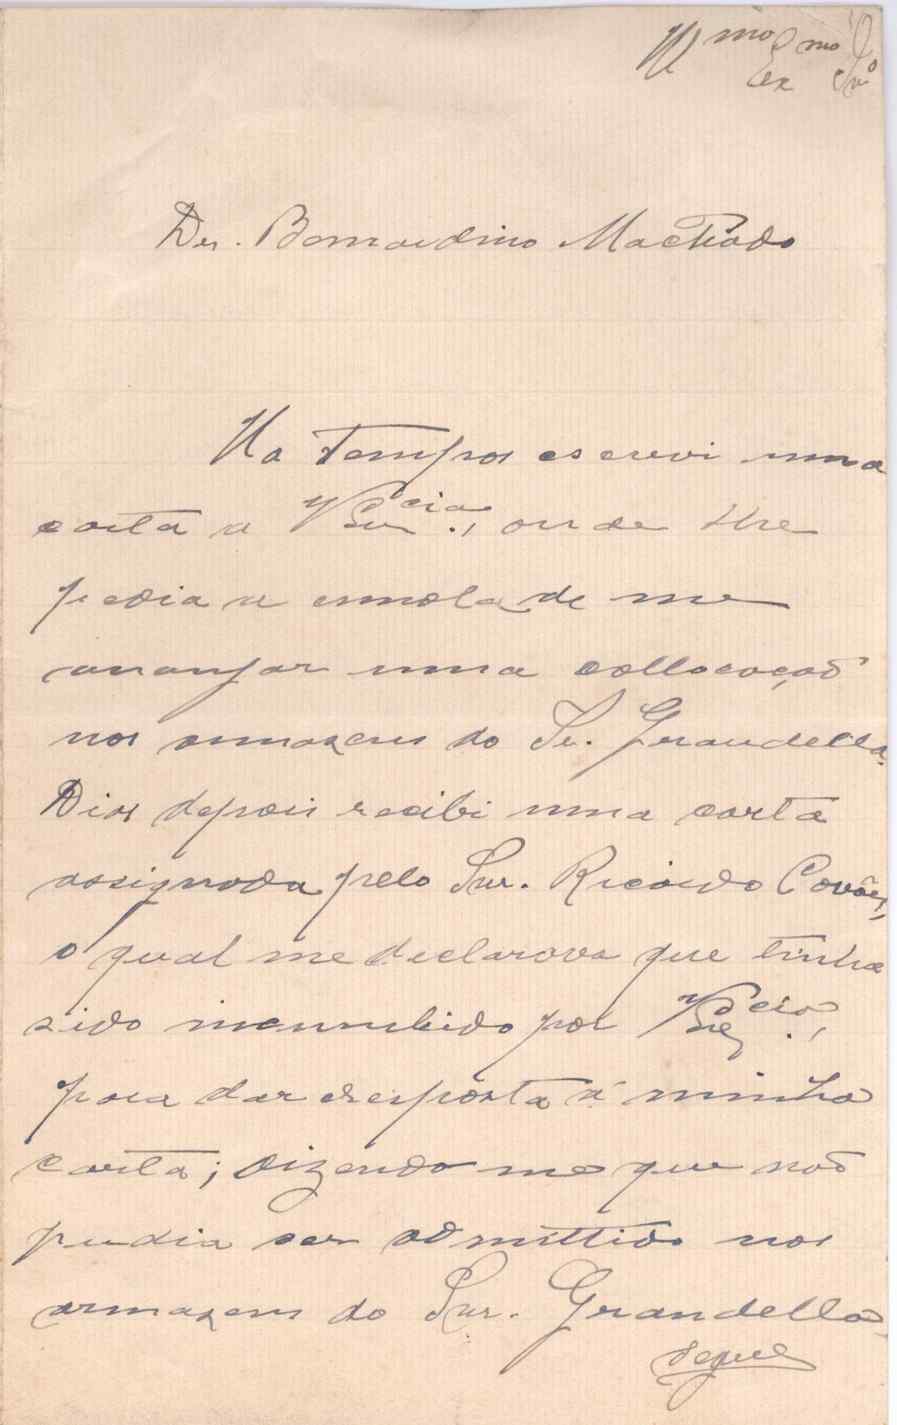 Ill mo Ex mo Snr
Dr. Bernardino Machado
Ha tempos escrevi uma
carta a V Ex cia., onde lhe
pedia a esmola de me
arranjar uma collocação
nos armazens do Sr. Grandella.
Dias depois recibi uma carta
assignada pelo Snr. Ricardo Covões,
o qual me declarava que tinha
sido incumbido por V Ex cia.,
para dar resposta á minha
carta; dizendo me que não
pudia ser admittido nos
armazens do Snr. Grandella
segue